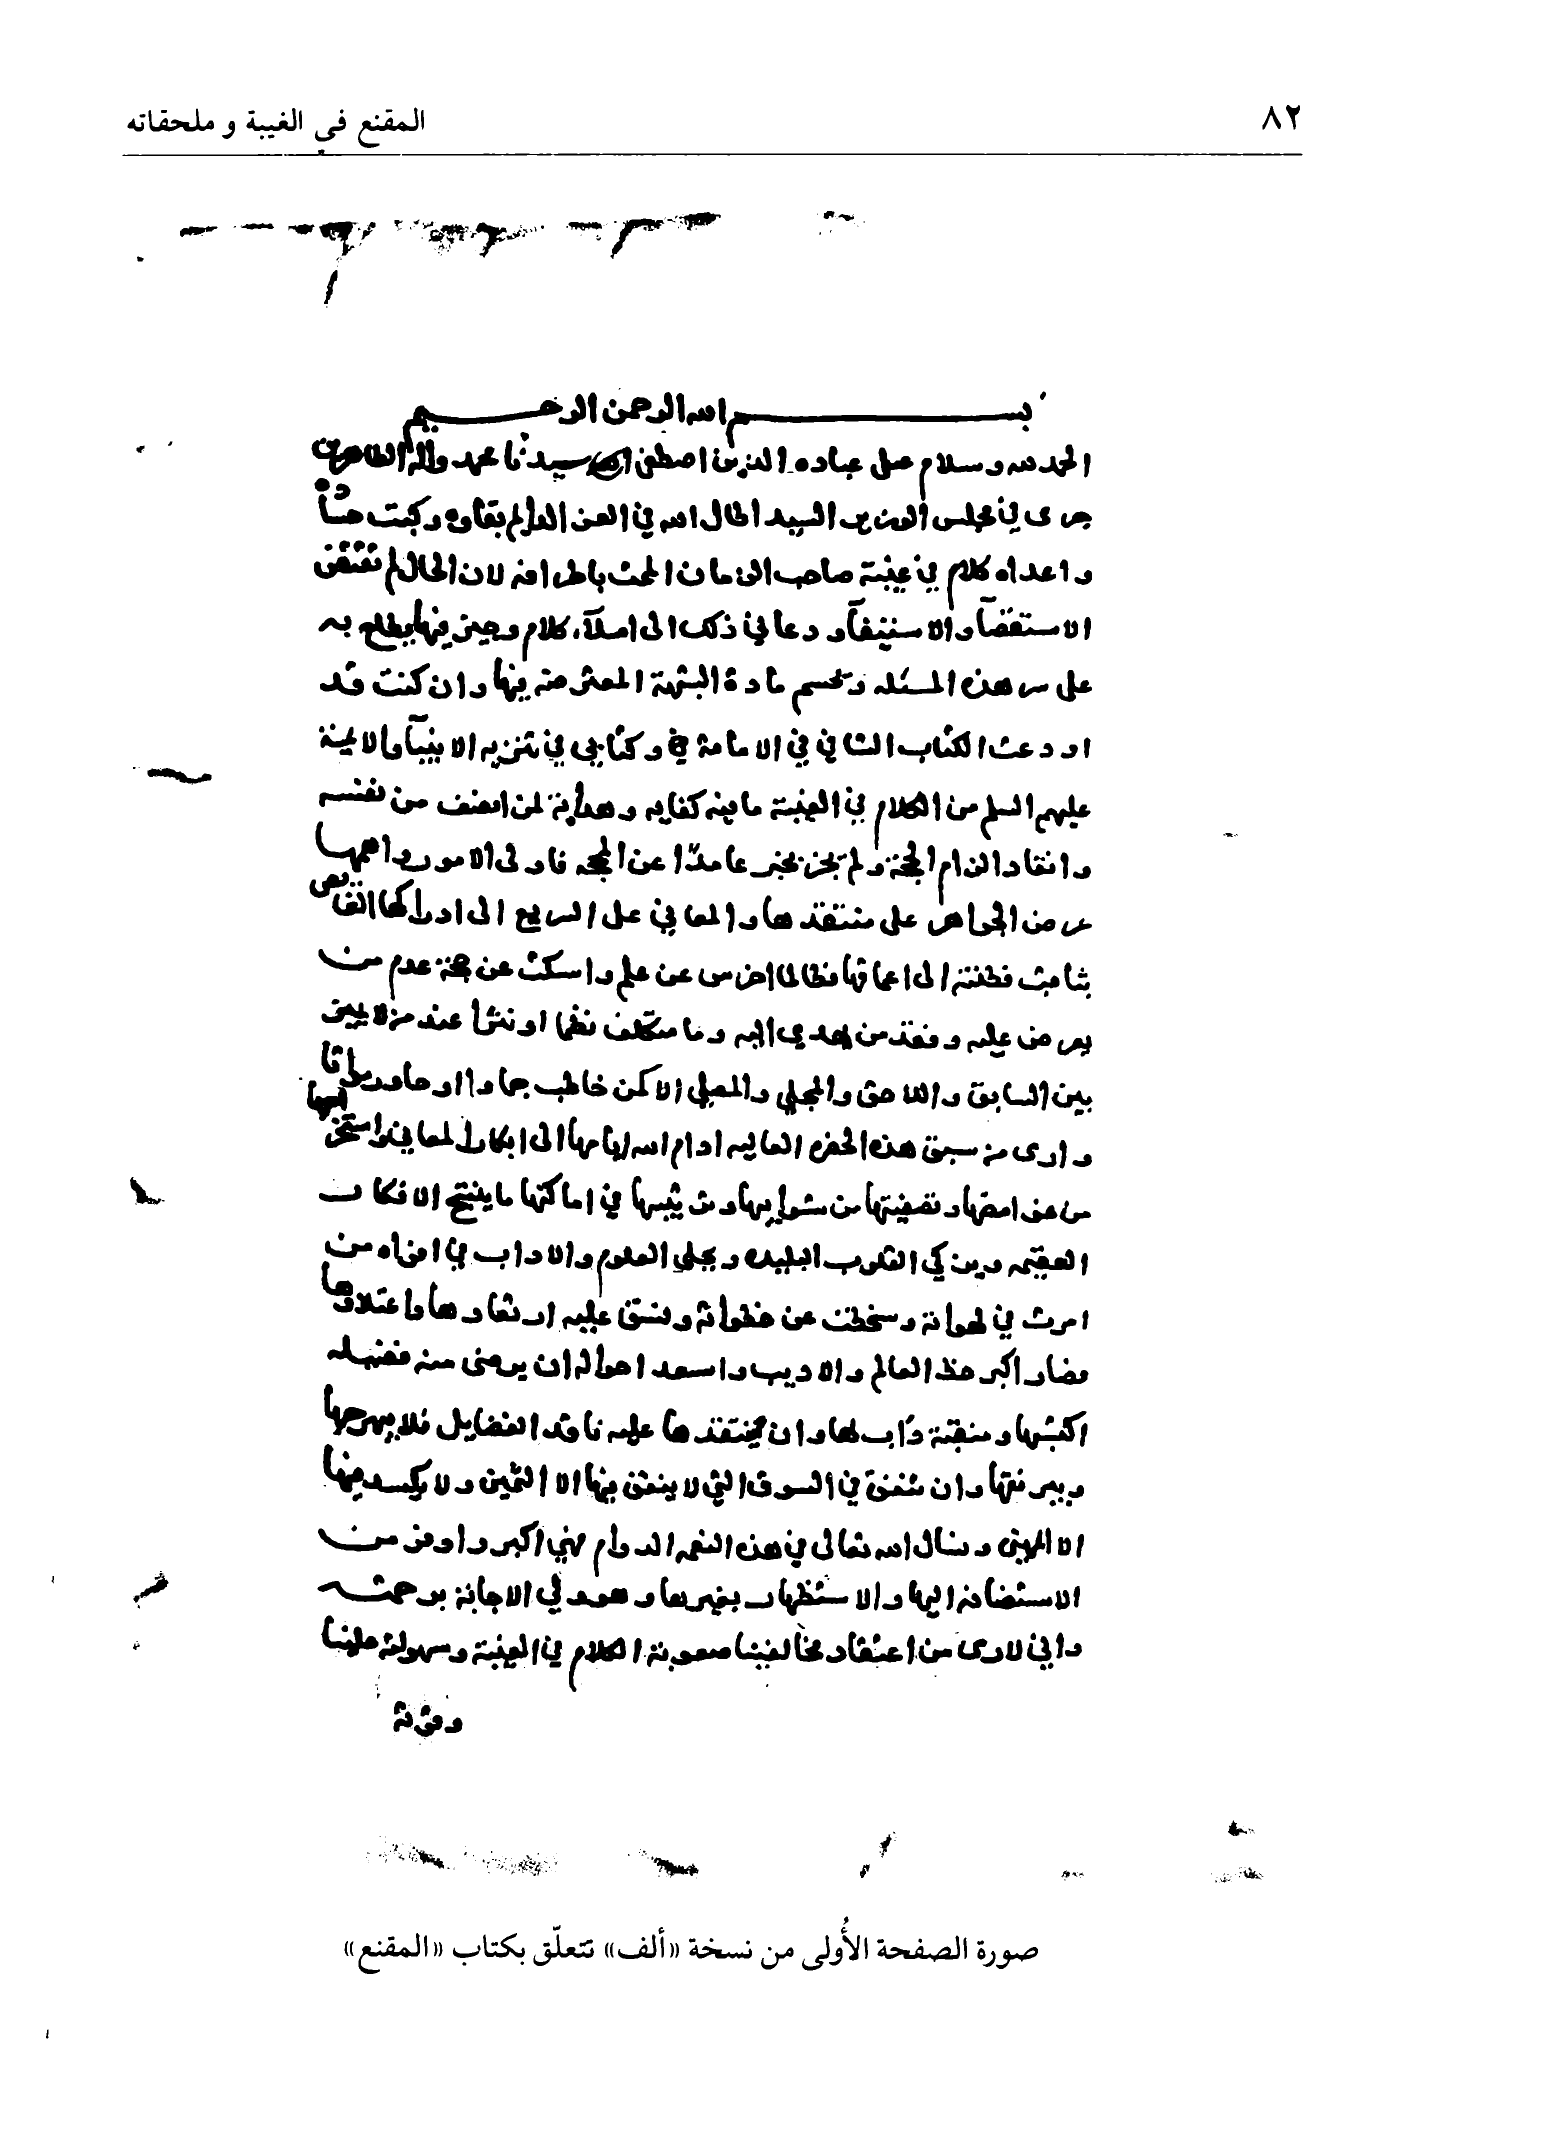 ٨٢
المقنع في الغيبة و ملحقاته
بسم الله الرحمن الرحيم
الحمد لله وسلام على عباده الذين اصطفى سيدنا محمد وآله الطاهرين
جرى في مجلس الوزير السيد اطال الله في العز الدايم بقاوه وكبت حساده
واعداه كلام في غيبة صاحب الزمان المحث باطرافه لان الحال لم تقتض
الاستقصآ والاستيفآ ودعاني ذلك الى املآء كلام وجيز فيها يطلع به
على سر هذه المسئله ويحسم مادة الشبهة المعترضه فيها وان كنت قد
اودعت الكتاب الشافي في الامامة وكتابي في تنزيه الانبيآ والائمة
عليهم السلم من الكلام في الغيبة ما فيه كفايه وهداية لمن انصف من نفسه
وانقاد لالزام الحجة ولم تجز عامدًا عن المحجه فاولى الامور واهمها
عرض الجواهر على منتقدها والمعاني على السريع الى ادراكها الغايص
بثاقب فطنته الى اعماقها فطالما اخرس عن علم واسكت عن حجة عدم من
يعرض عليه وفقد من يهدى اليه وما متكلف نظما او نثرا عند من لا يميز
بين السابق واللاحق والمجلي والمصلي الا كمن خاطب جمادا او حاور مواتا
وارى من سبق هذه الحضره العاليه ادام الله ايامها الى ابكار المعاني واستخراجها
من غوامضها وتصفيتها من شوايبها وترتيبها في اماكنها ما ينتج الافكار
العقيمه ويذكي القلوب البليده ويحلي العلوم والاداب في افواه من
امرت في لهواته وسخطت عن خطواته وشق عليه ارتقاوها واعتلاوها
فصار اكبر حظ العالم والاديب واسعد احواله ان يرضى منه فضيله
اكتسبها ومنقبة داب لها وان ينتقدها عليه ناقد الفضايل فلا يبهرجها
ويزيفها وان تنفق في السوق التي لا ينفق فيها الا الثمين ولا يكسد فيها
الا المهين ونسال الله تعالى في هذه النعمه الدوام فهي اكبر واوفر من
الاستضافه اليها والاستظهار بغيرها وهو ولي الاجابة برحمته
واني لارى من اعتقاد مخالفينا صعوبة الكلام في الغيبة وسهولته علينا
وقوته
صورة الصفحة الأُولى من نسخة «ألف» تتعلّق بكتاب «المقنع»